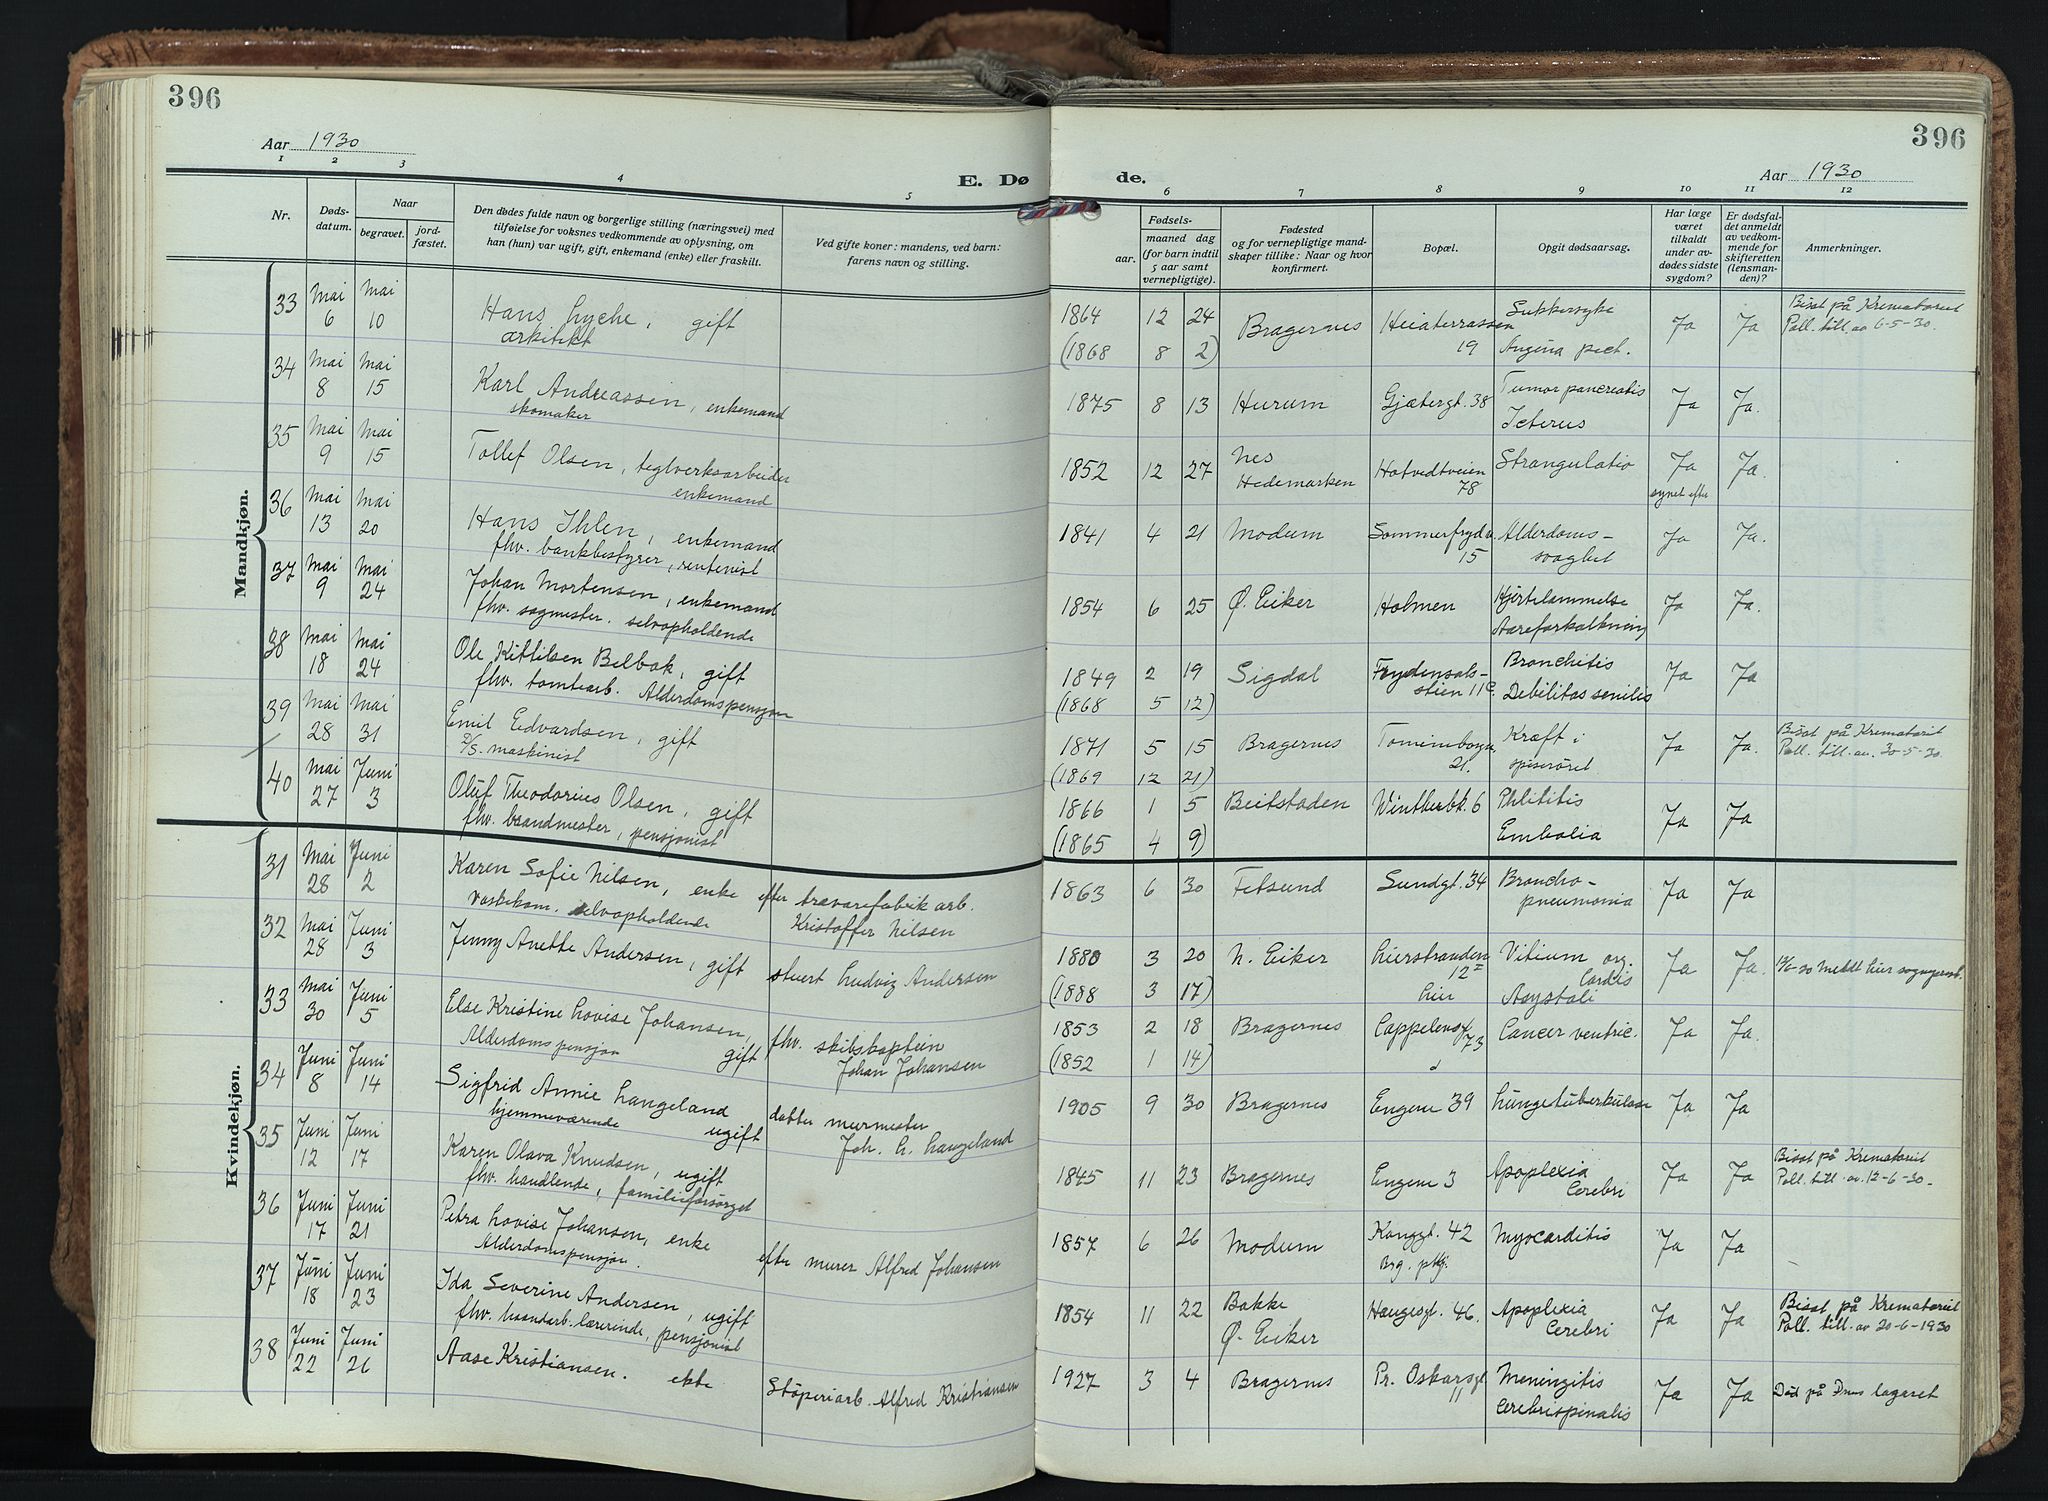 396
396
Aar 1930
Aar 1930
E. Dø
de.
1 2 3 4 5
6 7 8 9 10 11 12
Nr.
Døds-
datum.
Naar
begravet.
jord-
fæstet.
Den dødes fulde navn og borgerlige stilling (næringsvei) med
tilføielse for voksnes vedkommende av oplysning, om
han (hun) var ugift, gift, enkemand (enke) eller fraskilt.
Ved gifte koner: mandens, ved barn:
farens navn og stilling.
Fødsels-
aar.
maaned dag
(for barn indtil
5 aar samt
vernepligtige).
Fødested
og for vernepligtige mand-
skaper tillike: Naar og hvor
konfirmert.
Bopæl.
Opgit dødsaarsag.
Har læge
været
tilkaldt
under av-
dødes sidste
sygdom?
Er dødsfal-
det anmeldt
av vedkom-
mende for
skifteretten
(lensman-
den)?
Anmerkninger.
Mandkjøn.
33 Mai 6 Mai 10 Hans Lyche, gift
arkitekt
1864 12 24 Bragernes Heiaterrassen 19 Sukkersyke Ja Ja Bisat på Krematoriet
(1868 8 2) Angina pect. Poll. till. av 6-5-30.
34 Mai 8 Mai 15 Karl Andreassen, enkemand
skomaker
1875 8 13 Hurum Gjætergt. 38 Tumor pancreatis Ja Ja.
Icterus
35 Mai 9 Mai 15 Tollef Olsen, teglverksarbeider
enkemand
1852 12 27 Nes Hotvedtveien Strangulatio Ja Ja.
Hedemarken 78 synet efter
36 Mai 13 Mai 20 Hans Ihlen, enkemand
fhv. bankbestyrer, rentenist
1841 4 21 Modum 15 Alderdoms- Ja Ja.
svaghet
37 Mai 9 Mai 24 Johan Mortensen, enkemand
fhv. sagmester. selvopholdende
1854 6 25 Ø. Eiker Holmen Hjertelammelse Ja Ja.
Aareforkalkning
38 Mai 18 Mai 24 Ole Kittilsen Belbok, gift
fhv. tomtearb. Alderdomspensjon
1849 2 19 Sigdal Frydensals- Bronchitis Ja Ja
(1868 5 12) stien 11c. Debilitas senilis
39 Mai 28 Mai 31 Emil Edvardsen, gift
maskinist
1871 5 15 Bragernes 21. Kræft i Ja Ja. Bisat på Krematoriet
(1869 12 21) spiserøret Poll. till. av. 30-5-30.
40 Mai 27 Juni 3 Oluf Theodorius Olsen, gift
fhv. brandmester, pensjonist
1866 1 5 Beitstaden Wintherbk. 6 Phlititis Ja Ja
(1865 4 9) Embolia
Kvindekjøn.
31 Mai 28 Juni 2 Karen Sofie Nilsen, enke efter trevarefabrik arb.
Vaskekom. selvopholdende Kristoffer Nilsen
1863 6 30 Fetsund Sundgt. 34 Broncho- Ja Ja
pneumonia
32 Mai 28 Juni 3 Jenny Anette Andersen, gift stuert Ludvig Andersen
1880 3 20 N. Eiker Lierstranden Vitium org. Ja Ja.
(1888 3 17) Lier cordis
Asystoli
33 Mai 30 Juni 5 Else Kristine Lovise Johansen, fhv. skibskaptein
Alderdomspensjon gift Johan Johansen
1853 2 18 Bragernes 73 Cancer ventric. Ja Ja
(1852 1 14)
34 Juni 8 Juni 14 Sigfrid Annie Langeland datter murmester
hjemmeværende ugift Joh. L. Langeland
1905 9 30 Bragernes Engene 39 Lungetuberkulose Ja Ja
35 Juni 12 Juni 17 Karen Olava Knudsen, ugift
fhv. handlende, familieforsørget
1845 11 23 Bragernes Engene 3 Apoplexia Ja Ja Bisat på Krematoriet
cerebri Poll. till. av. 12-6-30-
36 Juni 17 Juni 21 Petra Lovise Johansen, enke efter murer Alfred Johansen
Alderdomspensjon.
1857 6 26 Modum Konggt. 42 Myocarditis Ja Ja
37 Juni 18 Juni 23 Ida Severine Andersen, ugift
fhv. haandarb. lærerinde, pensjonist
1854 11 22 Bakke Haugesgt. 46. Apoplexia Ja Ja Bisat på Krematoriet
Ø. Eiker cerebri Poll. till. av 20-6-1930
38 Juni 22 Juni 26 Aase Kristiansen. ekte Støperiarb. Alfred Kristiansen
1927 3 4 Bragernes Pr. Oskarsgt. Meningitis Ja Ja Død på Dmns lasaret
11 cerebrispinalis